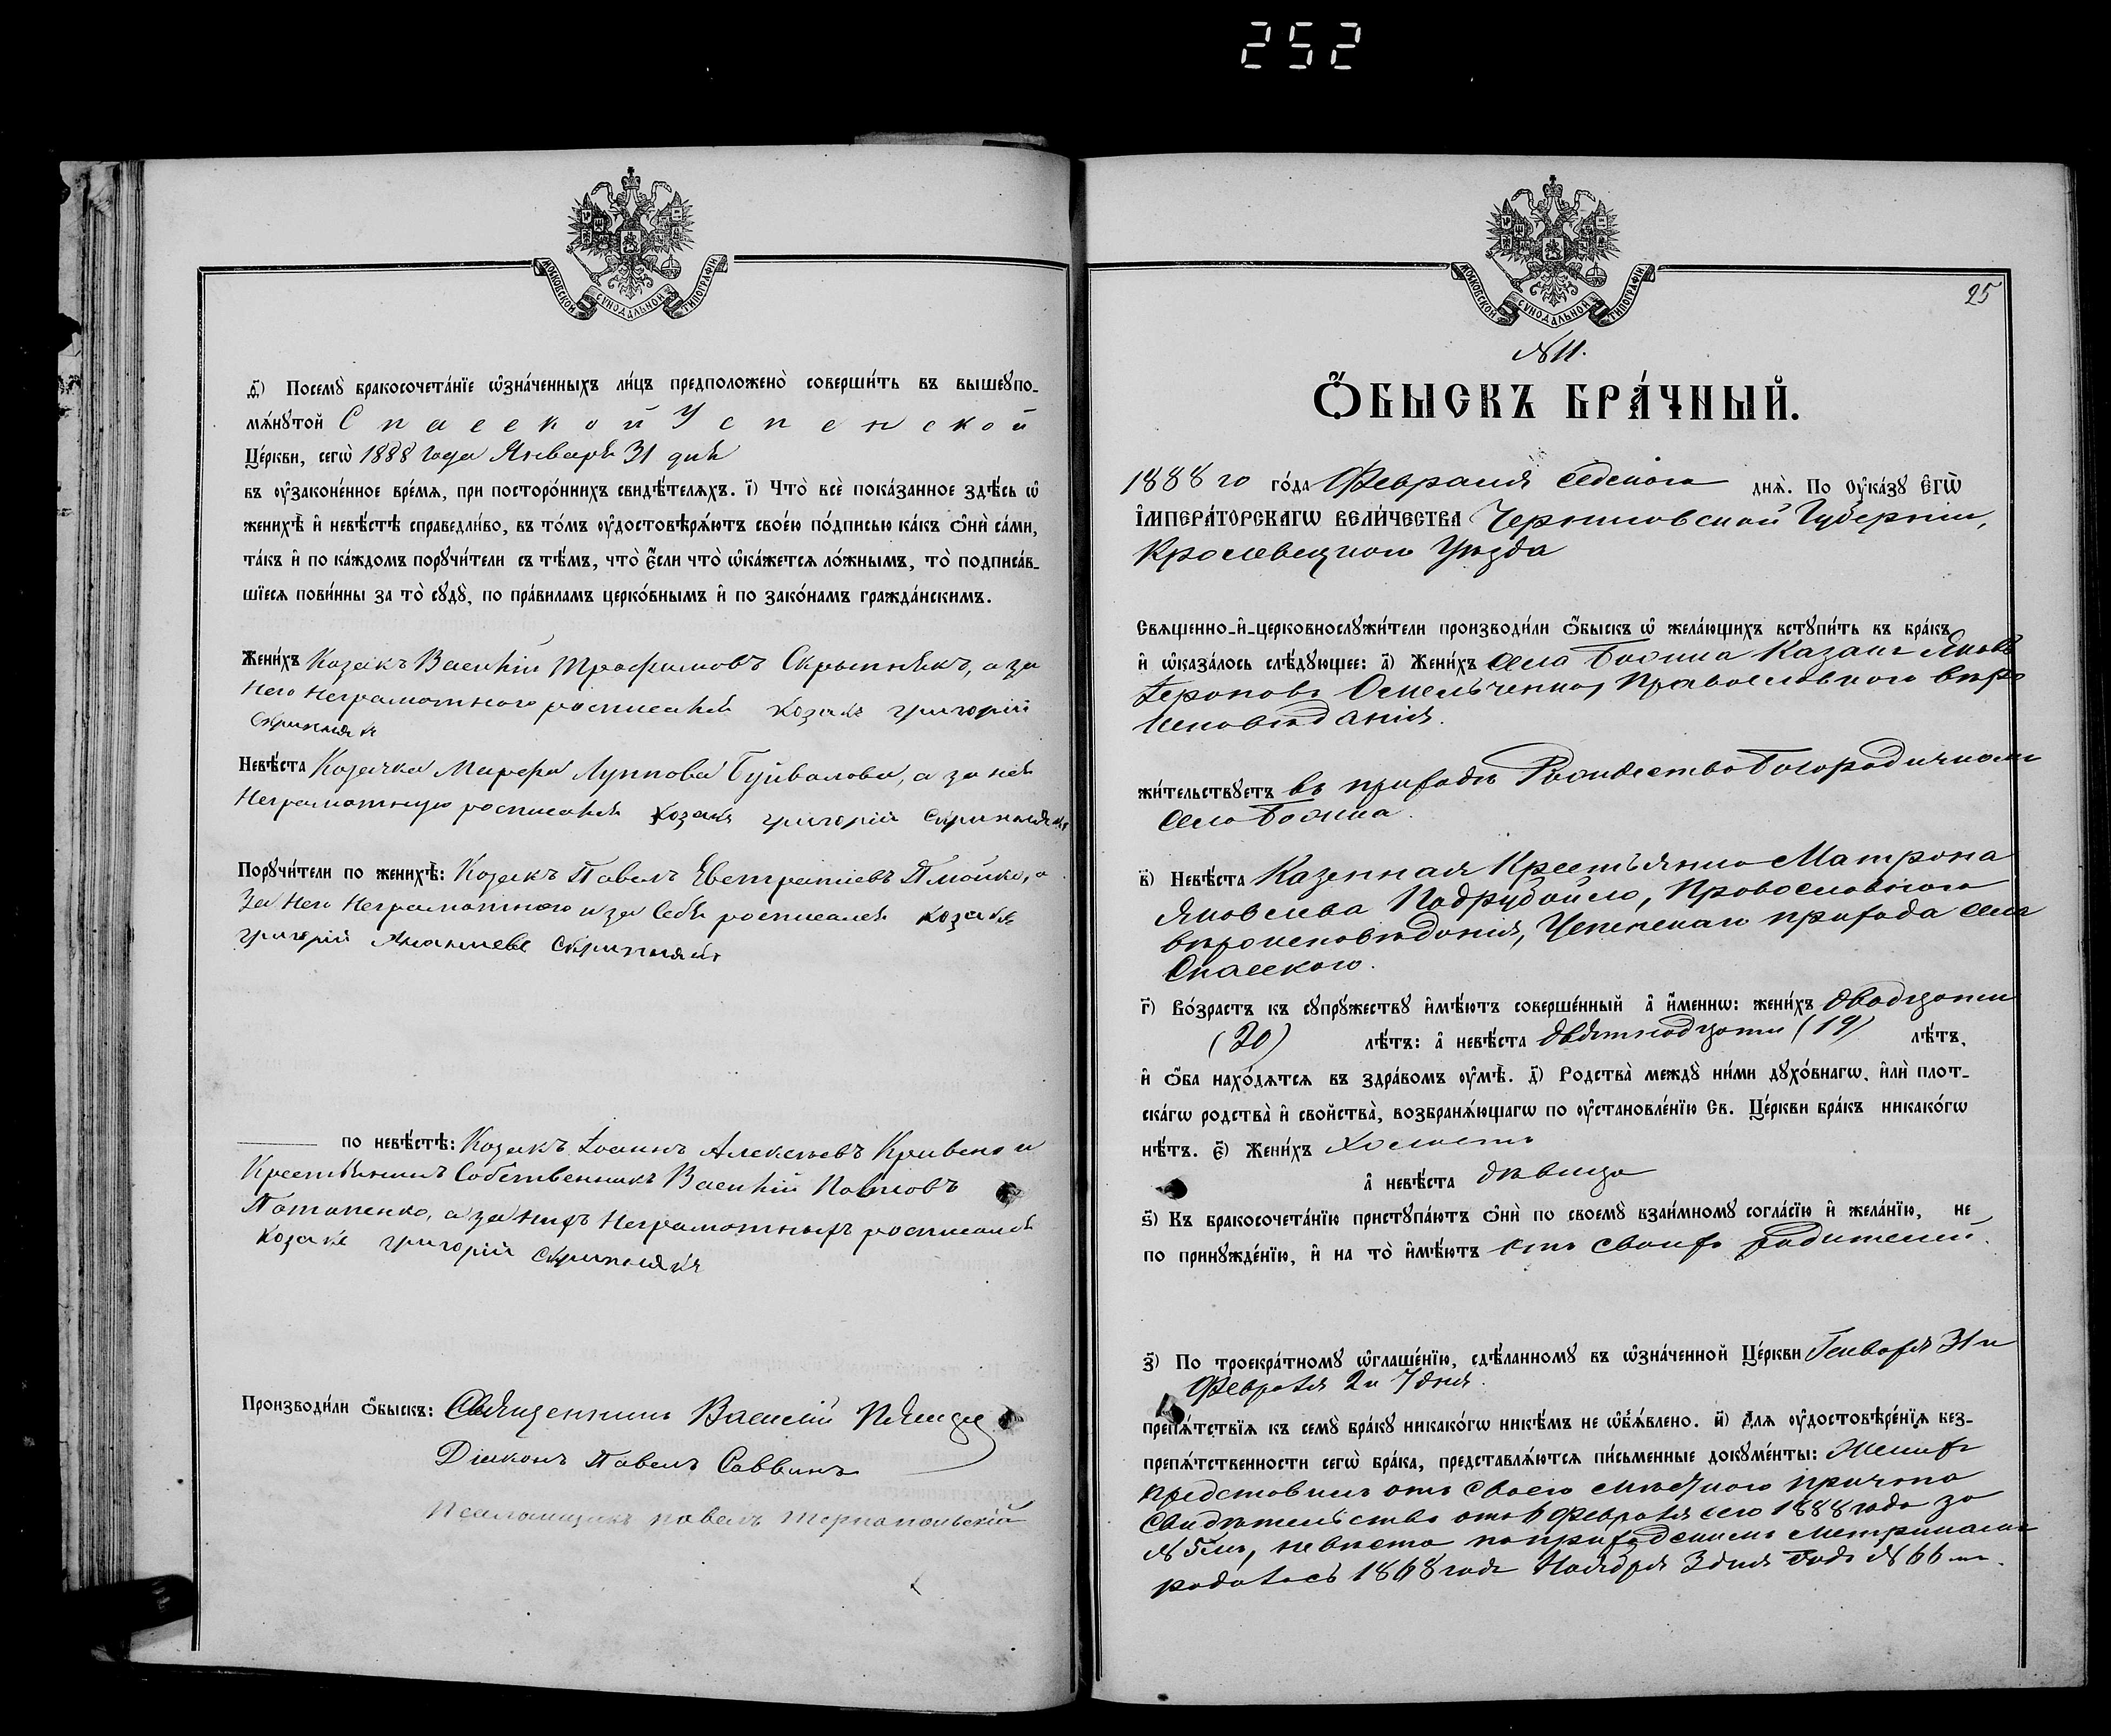 252
МОСКОВСКОЙ СУНОДАЛЬНОЙ ТИПОГРАФІИ
д҃) Посемꙋ̀ бракосочета́нїе ѡ҆зна́ченныхъ ли́цъ предположено̀ соверши́ть въ вышеꙋпо-
мѧ́нꙋтой Спасской Успенской
Це́ркви, сегѡ̀ 1888 года Января 31 дня
въ ᲂу҆законе́нное вре́мѧ, при посторо́ннихъ свидѣ́телѧхъ. і҃) Что̀ всѐ пока́занное здѣ́сь ѡ҆
женихѣ̀ и҆ невѣ́стѣ справедли́во, въ то́мъ ᲂу҆достовѣрѧ́ютъ свое́ю по́дписью ка́къ ѻ҆нѝ са́ми,
та́къ и҆ по ка́ждомъ порꙋчи́тели съ тѣ́мъ, что̀ є҆́сли что̀ ѡ҆ка́жетсѧ ло́жнымъ, то̀ подписа́в-
шїесѧ пови́нны за то̀ сꙋдꙋ̀, по пра́виламъ церко́внымъ и҆ по зако́намъ гражда́нскимъ.
Жени́хъ Козакъ Василій Трофимовъ Скрыпнякъ, а за
него неграмотного росписался козакъ григорій
Скрипняк
Невѣ́ста Козачка Марфа Луппова Буйвалова, а за нея
Неграмотную росписался козакъ григорій скрипнякъ
Порꙋчи́тели по женихѣ̀: Козакъ Павелъ Евстратіевъ, а
За него Неграмотного и за себя росписался козакъ
григорій Скрипнякъ
по невѣ́стѣ: Козакъ Іоаннъ Алексѣевъ Кривенко и
Крестьянинъ Собственникъ Василій Павловъ
Потапенко, а за нихъ Неграмотныхъ росписался
козакъ григорій скрипнякъ
Производи́ли ѻ҆́быскъ: Священникъ Василій
Діаконъ Павелъ Саввинъ
Псаломщикъ павелъ Тернопольскій
МОСКОВСКОЙ СУНОДАЛЬНОЙ ТИПОГРАФІИ
25
№ 11.
Ѻ҆́БЫСКЪ БРА́ЧНЫЙ.
1888 го го́да Февраля седмого днѧ̀. По Оу҆ка́зꙋ Є҆ГѠ̀
І҆МПЕРА́ТОРСКАГѠ ВЕЛИ́ЧЕСТВА Черниговской Губерніи,
Кролевецкого Уѣзда
Свѧщенно-и҆-церковнослꙋжи́тели производи́ли ѻ҆́быскъ ѡ҆ жела́ющихъ встꙋпи́ть въ бра́къ
и҆ ѡ҆каза́лось слѣ́дꙋющее: а҃) Жени́хъ села Казакъ Яковъ
Омельченко, Православного вѣро
исповѣданія.
жи́тельствꙋетъ въ приходѣ Рождество Богородичномъ
села
в҃) Невѣ́ста Казенная Крестьянка Матрона
Яковлева Подрубайло, Православного
вѣроисповѣданія, Успенскаго прихода села
Спасского.
г҃) Во́зрастъ къ сꙋпрꙋ́жествꙋ и҆мѣ́ютъ соверше́нный а҆ и҆́меннѡ: жени́хъ двадцати
(20) лѣ́тъ: а҆ невѣ́ста девятнадцати (19) лѣ́тъ,
и҆ ѻ҆́ба нахо́дѧтсѧ въ здра́вомъ ᲂу҆мѣ̀. д҃) Родства̀ междꙋ̀ ни́ми дꙋхо́внагѡ, и҆лѝ плот-
ска́гѡ родства̀ и҆ свойства̀, возбранѧ́ющагѡ по ᲂу҆становле́нїю Св. Це́ркви бра́къ никако́гѡ
нѣ́тъ. є҃) Жени́хъ Холостъ
а҆ невѣ́ста дѣвица
ѕ҃) Къ бракосочета́нїю пристꙋпа́ютъ ѻ҆нѝ по своемꙋ̀ взаи́мномꙋ согла́сїю и҆ жела́нїю, не
по принꙋжде́нїю, и҆ на то̀ и҆мѣ́ютъ отъ своихъ родителей.
з҃) По троекра́тномꙋ ѡ҆глаше́нїю, сдѣ́ланномꙋ въ ѡ҆зна́ченной Це́ркви Генваря 31 и
Февраля 2 и 7 дня.
препѧ́тствїѧ къ семꙋ̀ бра́кꙋ никако́гѡ никѣ́мъ не ѡ҆бъѧ́влено. и҃) Длѧ ᲂу҆достовѣре́нїѧ без-
препѧ́тственности сегѡ̀ бра́ка, представлѧ́ютсѧ пи́сьменные докꙋме́нты: Женихъ
представилъ отъ своего мѣстного причта
свидѣтельство отъ 6 Февраля сего 1888 года за
№ 5мъ, невѣста по приходскимъ метрикамъ
родилась 1868 года Ноября 3 дня подъ № 66 мъ.